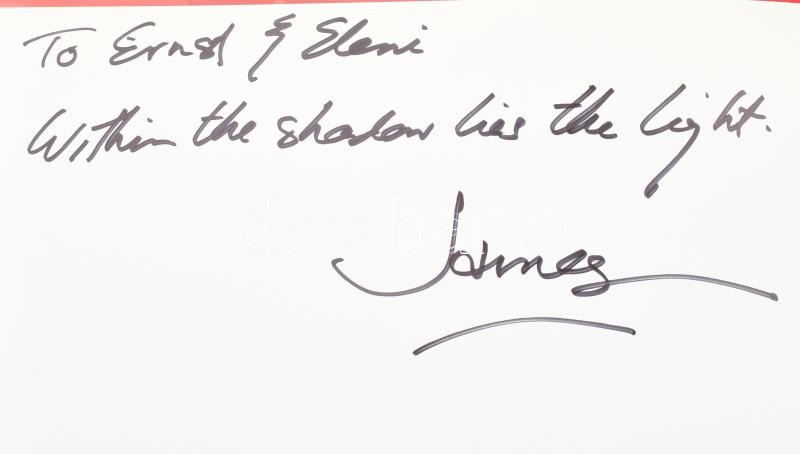 To Ernst & Eleni
Within the shadow lies the light.
James